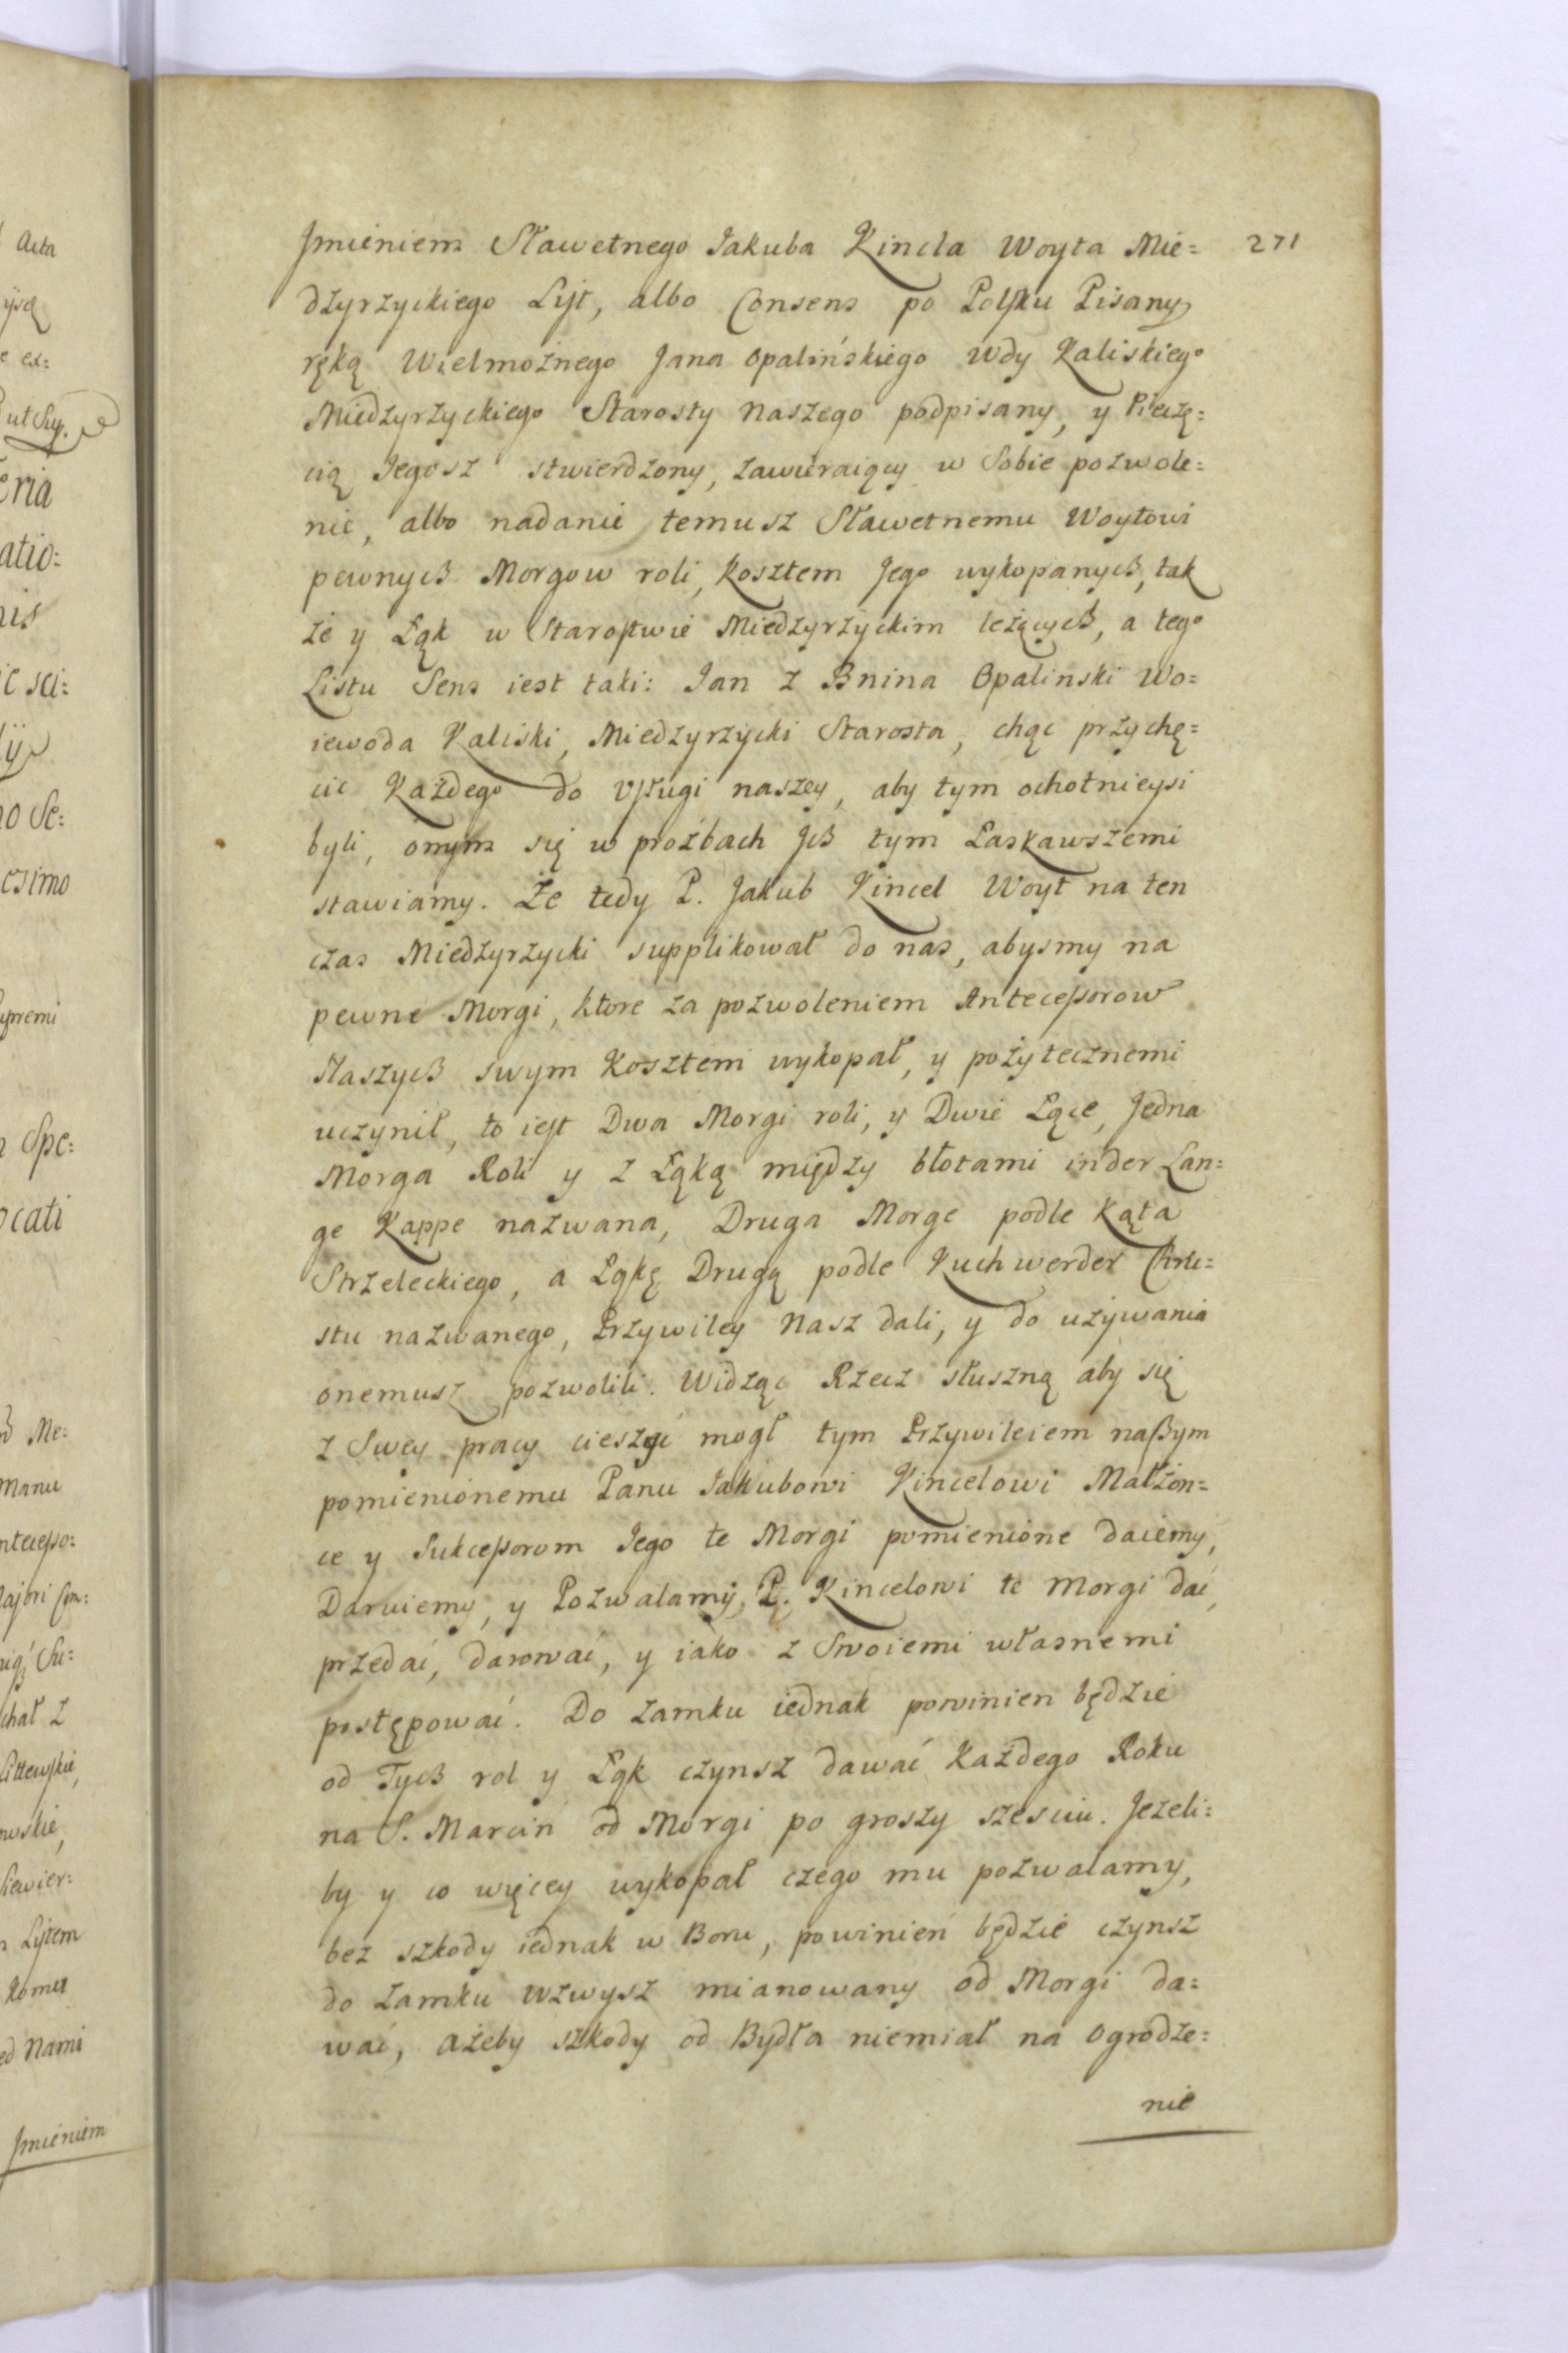 271
Jmieniem Sławetnego Jakuba Kincla Woyta Mie=
dzyrzyckiego List, albo Consens po Polsku Pisany
ręką Wielmożnego Jana Opalińskiego Wdy Kaliskiego
Miedzyrzyckiego Starosty naszego podpisany, y Pieczę=
cią Jegosz stwierdzony, zawieraiący w Sobie pozwole=
nie, albo nadanie temusz Sławetnemu Woytowi
pewnych Morgow roli, kosztem Jego wykopanych, tak
że y Łąk w Starostwie Miedzyrzyckim leżących, a tego
Listu Sens iest taki: Jan z Bnina Opalinski Wo=
iewoda Kaliski, Miedzyrzycki Starosta, chąc przychę=
cic Każdego do Usługi naszey, aby tym ochotnieysi
byli, onym się w proźbach Jch tym Łaskawszemi
stawiamy. Że tedy P. Jakub Kincel Woyt na ten
czas Miedzyrzycki supplikował do nas, abysmy na
pewne Morgi, ktore za pozwoleniem Antecessorow
Naszych swym Kosztem wykopał, y pożytecznemi
uczynił, to iest Dwa Morgi roli, y Dwie Łące, Jedna
Morga Roli y z Łąką między błotami in der Lan=
ge Kappe nazwana, Druga Morge podle Kąta
Strzeleckiego, a Łąkę Drugą podle Kuchwerder Chru=
stu nazwanego, Przywiley Nasz dali, y do używania
onemusz pozwolili. Widząc Rzecz słuszną aby się
z Swey pracy cieszyć mogł tym Przywileiem naszym
pomienionemu Panu Jakubowi Kincelowi Małżon=
ce y Sukcessorom Jego te Morgi pomienione daiemy,
Daruiemy, y Pozwalamy, P. Kincelowi te Morgi dać,
przedać, darować, y iako z Swoiemi własnemi
postępować. Do Zamku iednak powinien będzie
od Tych rol y Łąk czynsz dawać Każdego Roku
na S. Marcin od Morgi po groszy szesciu. Jeżeli=
by y co więcey wykopał czego mu pozwalamy,
bez szkody iednak w Boru, powinien będzie czynsz
do Zamku wzwysz mianowany od Morgi da=
wać, Ażeby szkody od Bydła niemiał na Ogrodze=
nie